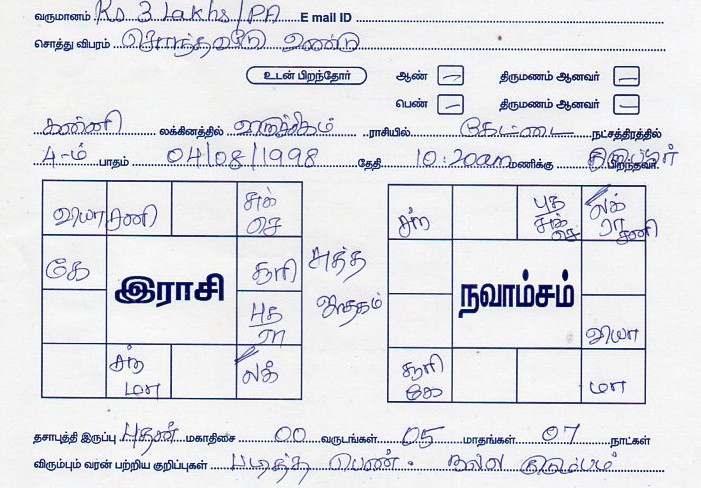 வருமானம் Rs 3 Lakhs/PA E mail ID
சொத்து விபரம் சொந்தவீடு உண்டு
உடன் பிறந்தோர் ஆண் – திருமணம் ஆனவர் –
பெண் – திருமணம் ஆனவர் –
கன்னி லக்கினத்தில் விருச்சிகம் ராசியில் கேட்டை நட்சத்திரத்தில்
4-ம் பாதம் 04/08/1998 தேதி 10:20am மணிக்கு பிறந்தவர்
வியா சனி சுக் செ
கே சூரி
இராசி
புத ரா
சந் மா லக்
சுத்த ஜாதகம்
சந் புத சுக் செ லக் ரா சனி
நவாம்சம்
வியா
சூரி கே மா
தசாபுத்தி இருப்பு புதன் மகாதிசை 00 வருடங்கள் 05 மாதங்கள் 07 நாட்கள்
விரும்பும் வரன் பற்றிய குறிப்புகள் படித்த பெண். நல்ல குடும்பம்